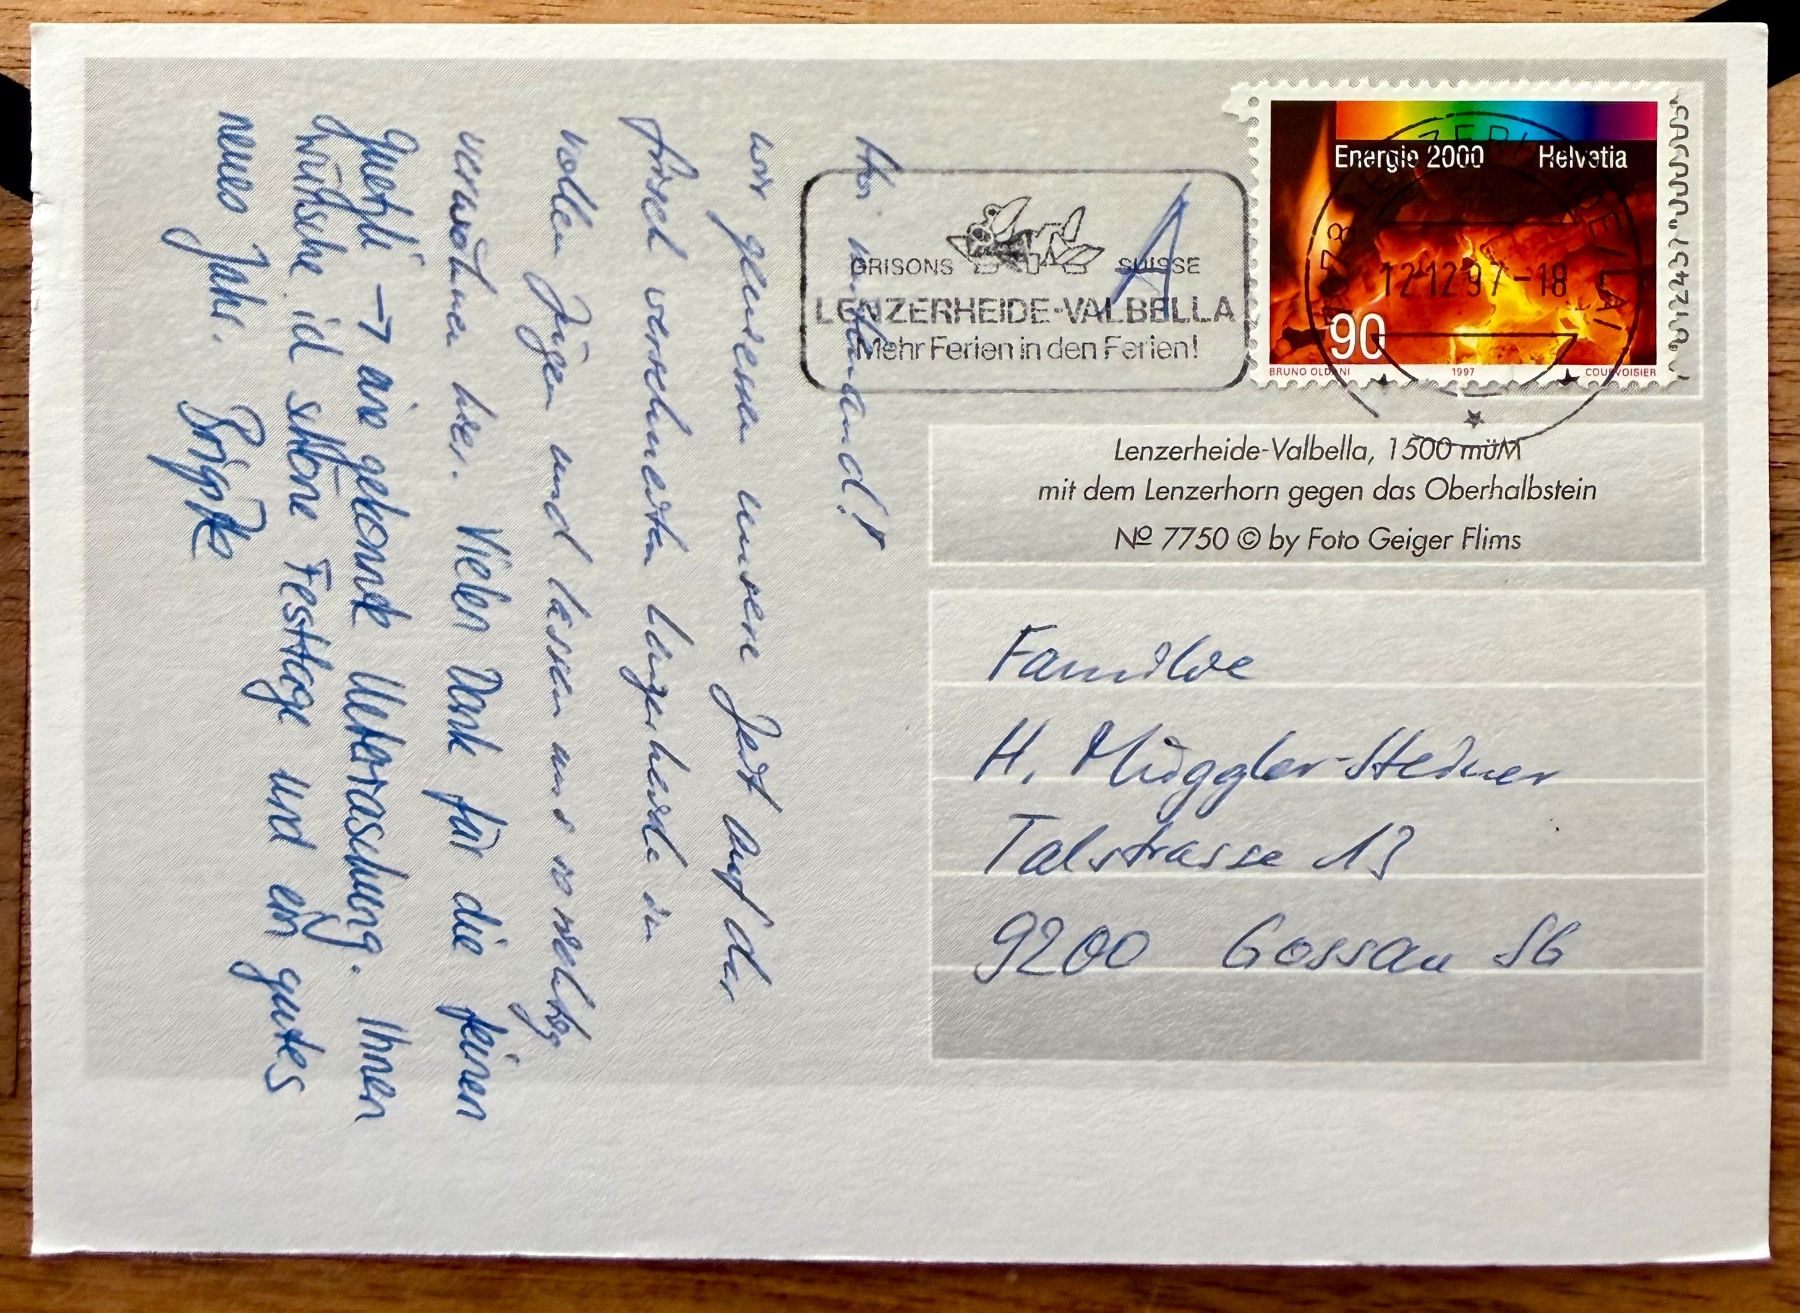 Energie 2000 Helvetia
90
BRUNO OLDANI 1997 COURVOISIER
7078 LENZERHEIDE/LAI
12.12.97-18
GRISONS SUISSE
LENZERHEIDE-VALBELLA
Mehr Ferien in den Ferien!
A
Lenzerheide-Valbella, 1500 müM
mit dem Lenzerhorn gegen das Oberhalbstein
Nº 7750 © by Foto Geiger Flims
Familie
H. Müggler-Steiner
Talstrasse 13
9200 Gossau SG
Hoi mitenand!
wir geniessen unsere Zeit auf der
frisch verschneiten Lenzerheide in
vollen Zügen und lassen uns so richtig
verwöhnen hier. Vielen Dank für die feinen
Guetzli → eine gekonnte Ueberraschung. Ihnen
wünsche ich schöne Festtage und ein gutes
neues Jahr. Brigitte